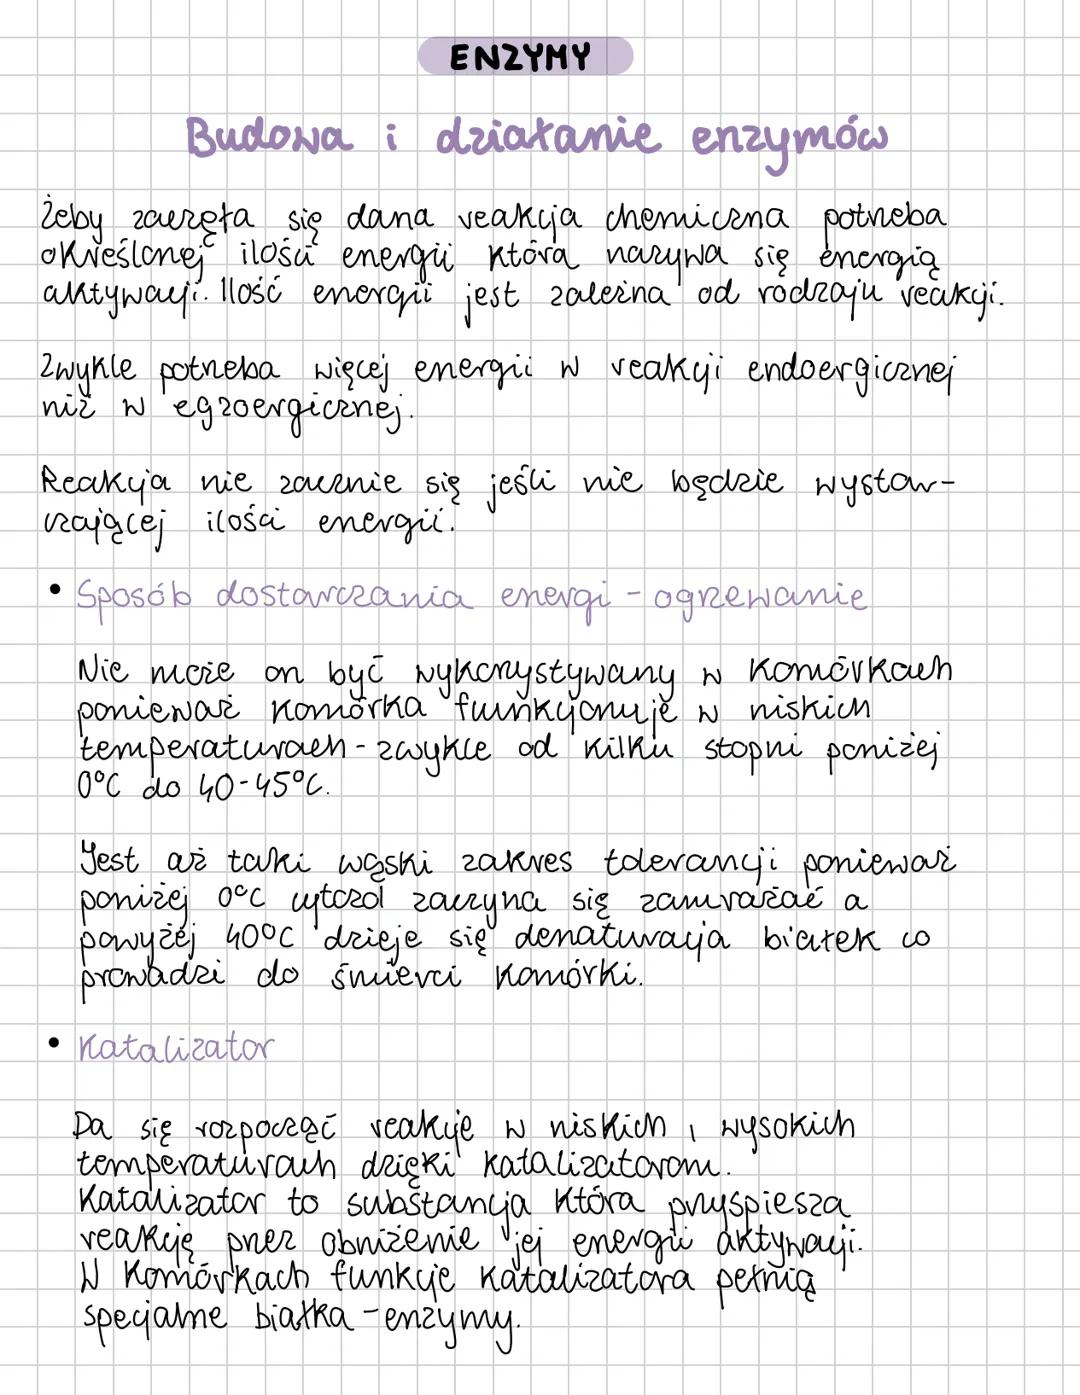 ENZYMY
Budowa i działanie enzymów
Żeby zaczęła się dana reakcja chemiczna potrzeba
określonej ilości energii która nazywa się energią
aktywacji. Ilość energii jest zależna od rodzaju reakcji.
Zwykle potrzeba więcej energii w reakcji endoergicznej
niż w egzoergicznej.
Reakcja nie zacznie się jeśli nie będzie wystar-
czającej ilości energii.
• Sposób dostarczania energi - ogrzewanie
Nie może on być wykorzystywany w komórkach
ponieważ komórka funkcjonuje w niskich
temperaturach - zwykle od kilku stopni poniżej
0°C do 40-45°C.
Jest aż taki wąski zakres tolerancji ponieważ
poniżej 0°C cytozol zaczyna się zamrażać a
powyżej 40°C dzieje się denaturacja białek co
prowadzi do śmierci komórki.
• Katalizator
Da się rozpocząć reakcje w niskich i wysokich
temperaturach dzięki katalizatorom.
Katalizator to substancja która przyspiesza
reakcję przez obniżenie jej energii aktywacji.
W komórkach funkcje katalizatora pełnią
specjalne białka - enzymy.